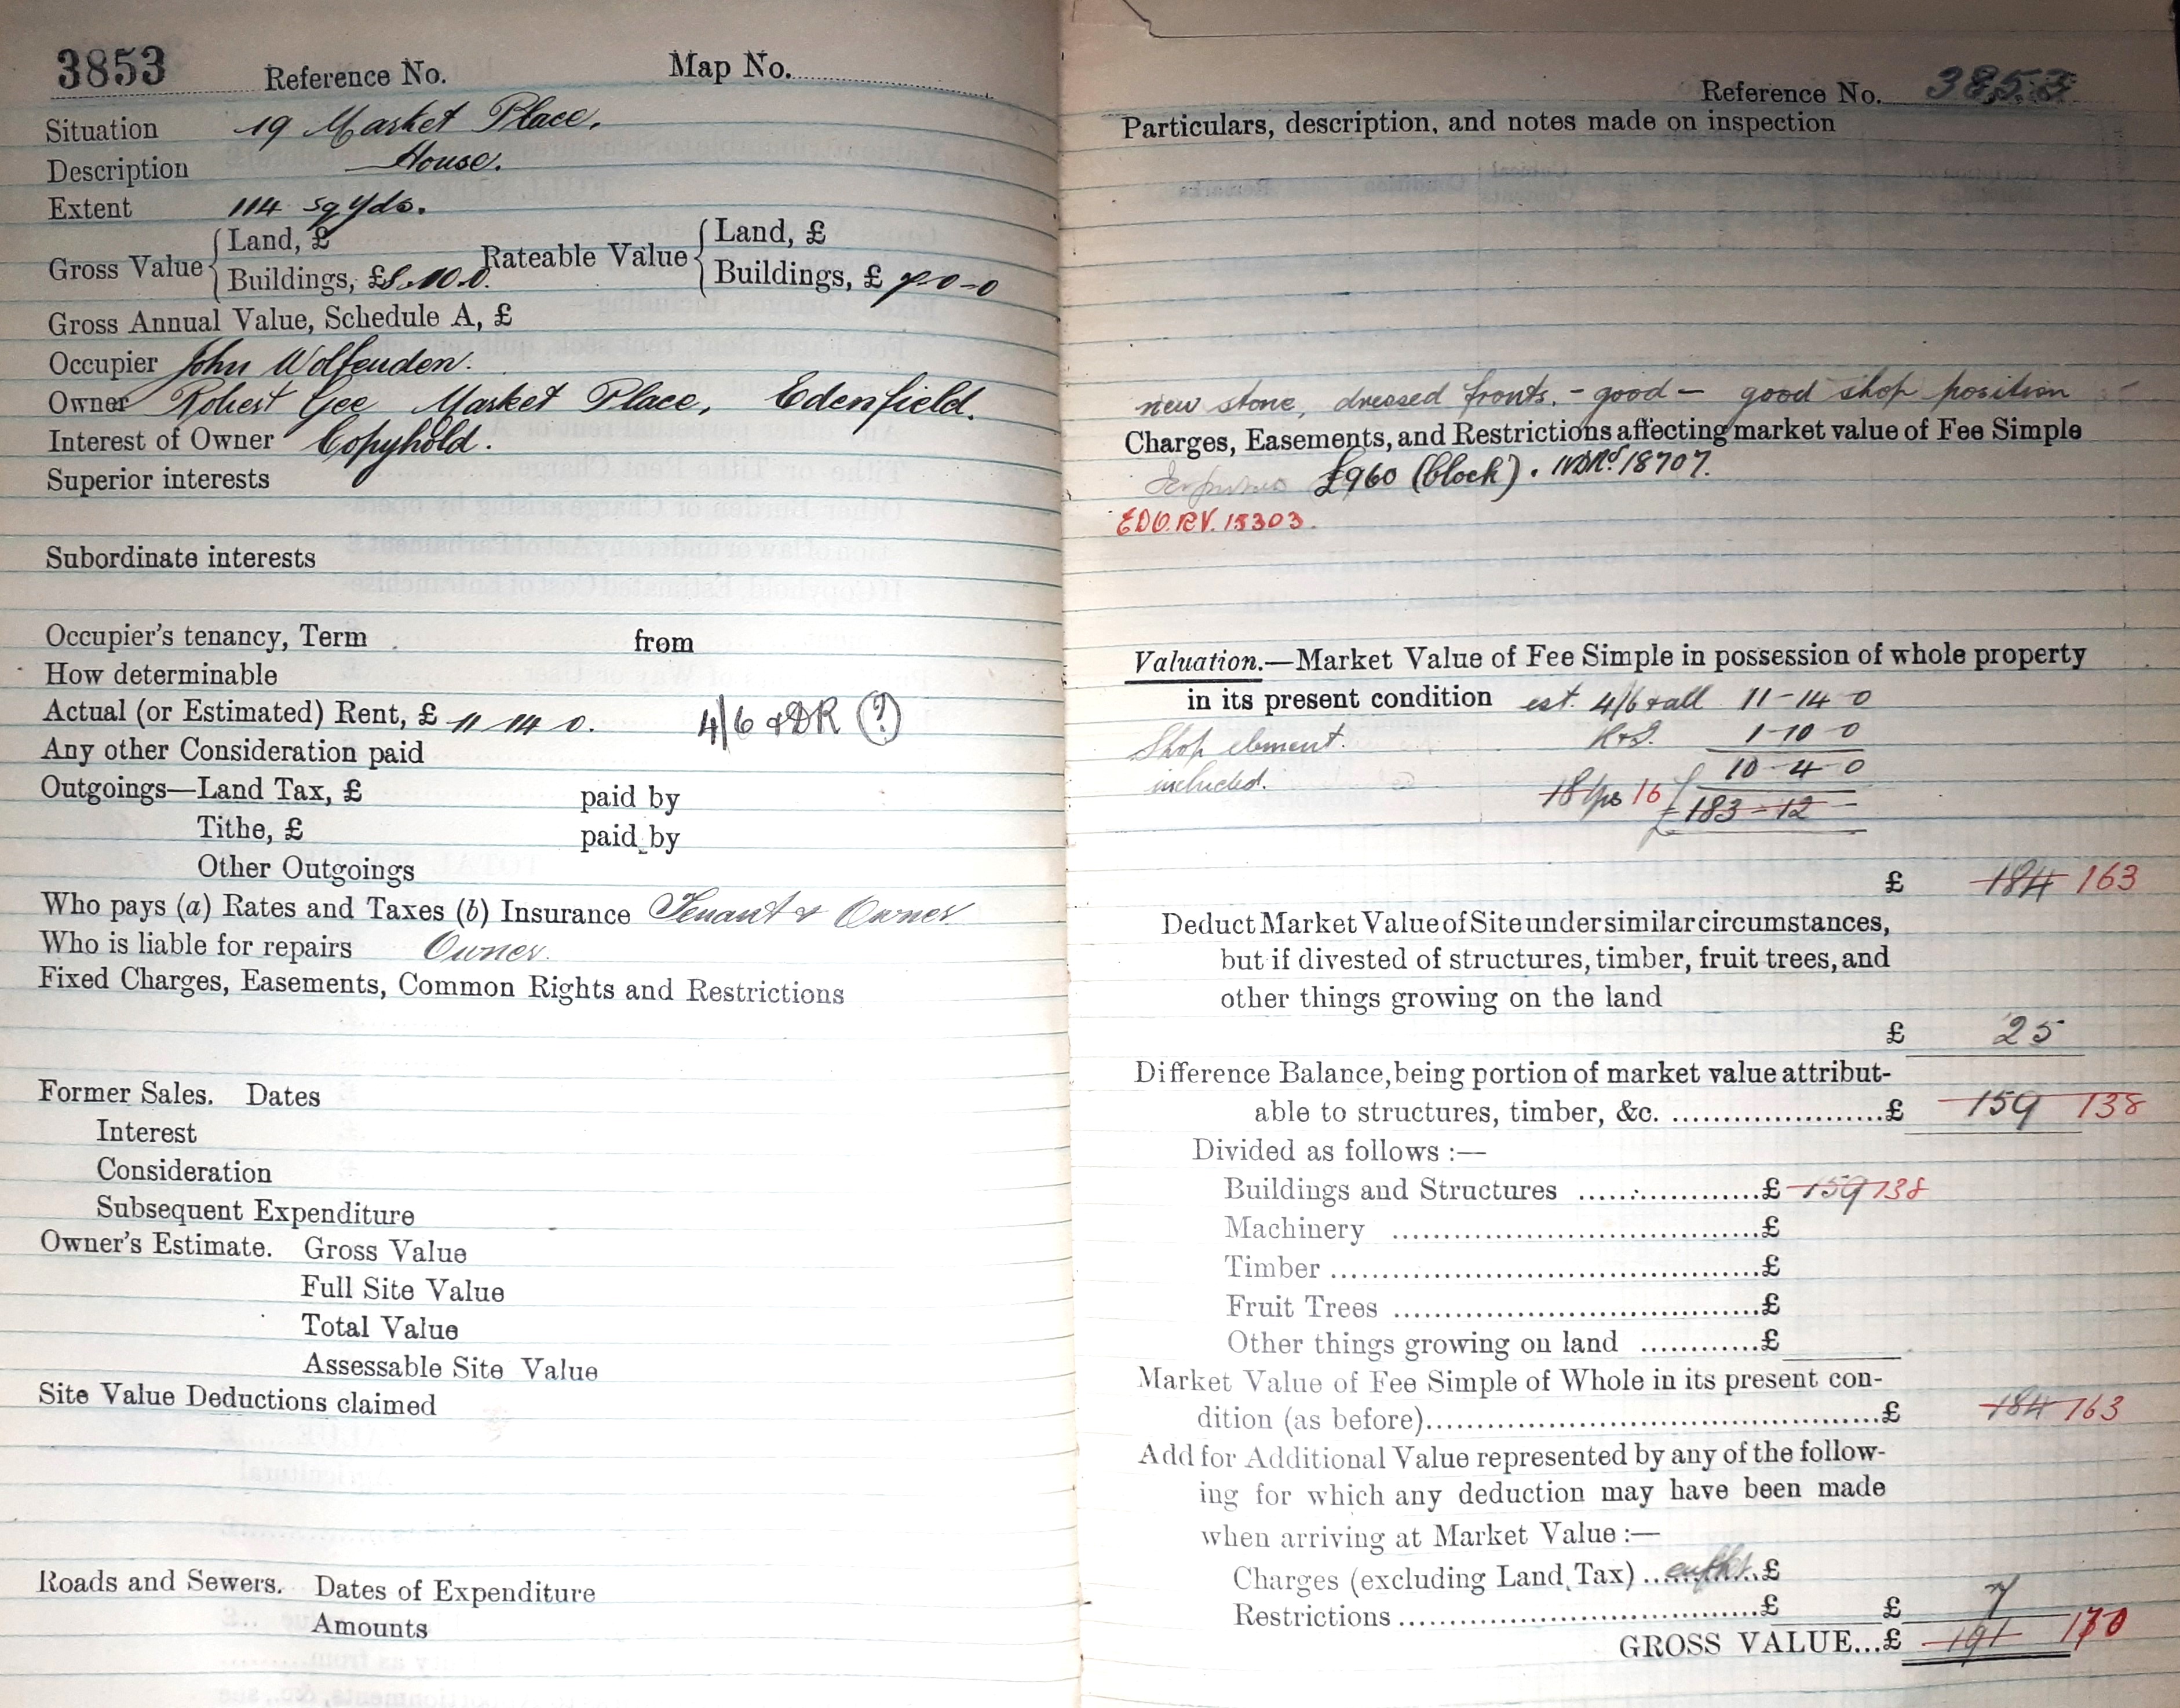 3853 Reference No. Map No.
Situation 19 Market Place.
Description House.
Extent 114 sq yds.
Gross Value { Land, £ Rateable Value { Land, £
Buildings, £8.10.0. Buildings, £ 7-0-0
Gross Annual Value, Schedule A, £
Occupier John Wolfenden.
Owner Robert Gee Market Place, Edenfield.
Interest of Owner Copyhold.
Superior interests
Subordinate interests
Occupier's tenancy, Term from
How determinable
Actual (or Estimated) Rent, £ 11 14 0. 4/6 & DR (?)
Any other Consideration paid
Outgoings—Land Tax, £ paid by
Tithe, £ paid by
Other Outgoings
Who pays (a) Rates and Taxes (b) Insurance Tenant & Owner
Who is liable for repairs Owner.
Fixed Charges, Easements, Common Rights and Restrictions
Former Sales. Dates
Interest
Consideration
Subsequent Expenditure
Owner's Estimate. Gross Value
Full Site Value
Total Value
Assessable Site Value
Site Value Deductions claimed
Roads and Sewers. Dates of Expenditure
Amounts
Reference No. 3853
Particulars, description, and notes made on inspection
new stone, dressed fronts. - good - good shop position
Charges, Easements, and Restrictions affecting market value of Fee Simple
£960 (block).
EDO.RV.15303.
Valuation.—Market Value of Fee Simple in possession of whole property
in its present condition est. 4/6 & all 11-14-0
Shop element. R+I. 1-10-0
included. 10-4-0
18 yps 16 £183-12-
£ 184 163
Deduct Market Value of Site under similar circumstances,
but if divested of structures, timber, fruit trees, and
other things growing on the land
£ 25
Difference Balance, being portion of market value attribut-
able to structures, timber, &c. ....................£ 159 138
Divided as follows :—
Buildings and Structures ....................£ 159 138
Machinery ....................£
Timber ....................£
Fruit Trees ....................£
Other things growing on land ............£
Market Value of Fee Simple of Whole in its present con-
dition (as before)....................£ 184 163
Add for Additional Value represented by any of the follow-
ing for which any deduction may have been made
when arriving at Market Value :—
Charges (excluding Land Tax) ............£
Restrictions ....................£ £ 7
GROSS VALUE...£ 191 170